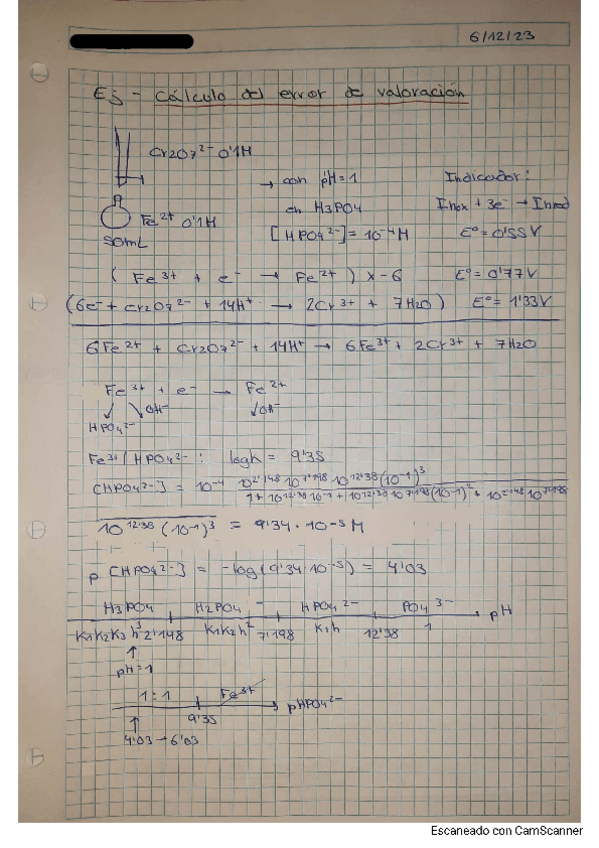 6/12/23
Ej - Cálculo del error de valoración
Cr2O7²⁻ 0'1M
Fe²⁺ 0'1M
50mL
→ con pH=1
en H3PO4
[HPO4²⁻]=10⁻⁴M
Indicador:
Inox + 3e⁻ → Inred
Eº=0'55V
(Fe³⁺ + e⁻ → Fe²⁺) x-6 Eº=0'77V
(6e⁻+ Cr2O7²⁻ + 14H⁺ → 2Cr³⁺ + 7H2O) Eº=1'33V
6Fe²⁺ + Cr2O7²⁻ + 14H⁺ → 6Fe³⁺ + 2Cr³⁺ + 7H2O
Fe³⁺ + e⁻ → Fe²⁺
↙ ↘OH⁻ ↙OH⁻
HPO4²⁻
Fe³⁺/HPO4²⁻: logk = 9'35
[HPO4²⁻] = 10⁻⁴ 10^2'148 10^7'198 10^12'38 (10⁻¹)³
1+10^12'38 10⁻¹+10^12'38 10^7'198 (10⁻¹)² + 10^2'148 10^7'198
10^12'38 (10⁻¹)³ = 9'34·10⁻⁵ M
p[HPO4²⁻] = -log(9'34·10⁻⁵) = 4'03
H3PO4 H2PO4⁻ HPO4²⁻ PO4³⁻ → pH
K1K2K3h³ 2'148 K1K2h² 7'198 K1h 12'38 1
↑
pH=1
1:1 Fe³⁺ → pHPO4²⁻
9'35
↑
4'03→6'03
Escaneado con CamScanner